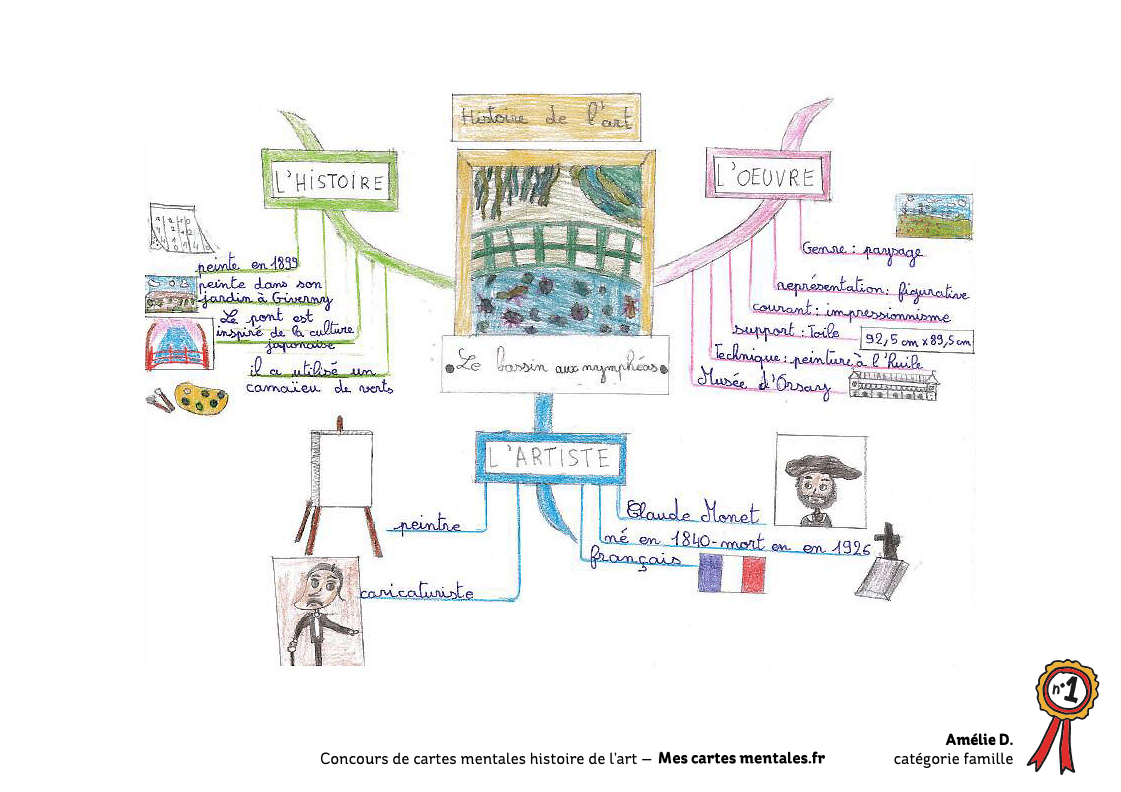 Histoire de l'art
L'HISTOIRE
peinte en 1899
peinte dans son
jardin à Giverny
Le pont est
inspiré de la culture
japonaise
il a utilisé un
camaïeu de verts
Le bassin aux nymphéas
L'OEUVRE
Genre : paysage
représentation : figurative
courant : impressionnisme
support : Toile
92,5 cm x 89,5 cm
Technique : peinture à l'huile
Musée d'Orsay
L'ARTISTE
peintre
caricaturiste
Claude Monet
né en 1840-mort en en 1926
français
n°1
Amélie D.
catégorie famille
Concours de cartes mentales histoire de l'art – Mes cartes mentales.fr